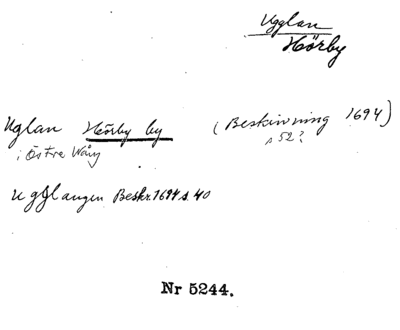 Ugglan
Hörby
Uglan Hörby by (Beskrivning 1694)
i Östra Wång s 52?
Ugglangen Beskr. 1694 s. 40
Nr 5244.